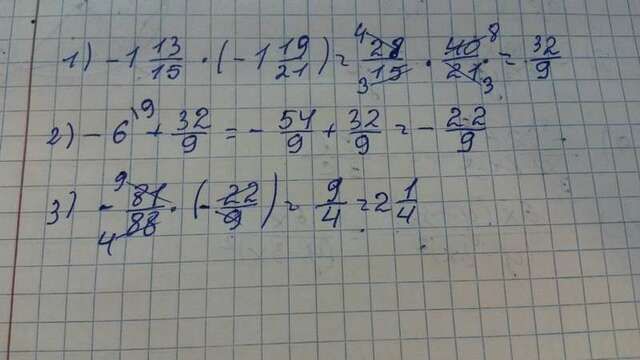 1) -1 13/15 · (-1 19/21) = 4 28/15 3 · 40 8/21 3 = 32/9
2) -6 \9 + 32/9 = - 54/9 + 32/9 = - 2·2/9
3) - 9 81/88 4 · (- 22/9) = 9/4 = 2 1/4